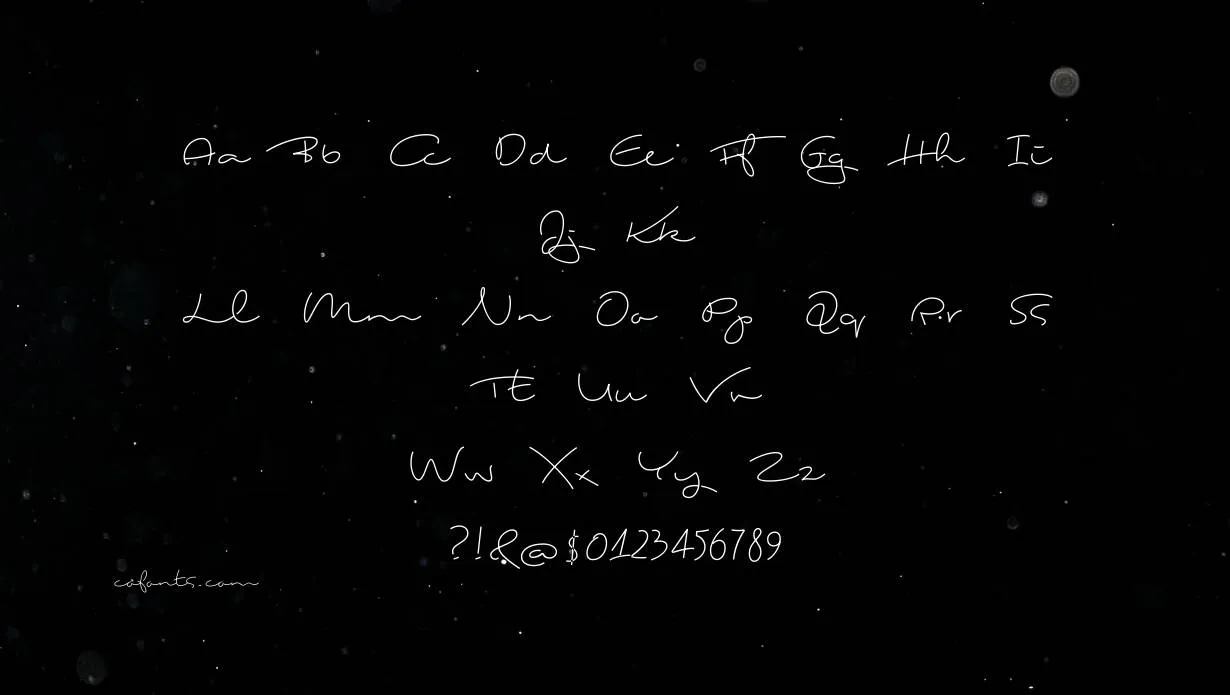 Aa Bb Cc Dd Ee Ff Gg Hh Ii
Jj Kk
Ll Mm Nn Oo Pp Qq Rr Ss
Tt Uu Vv
Ww Xx Yy Zz
?!&@$0123456789
cofonts.com